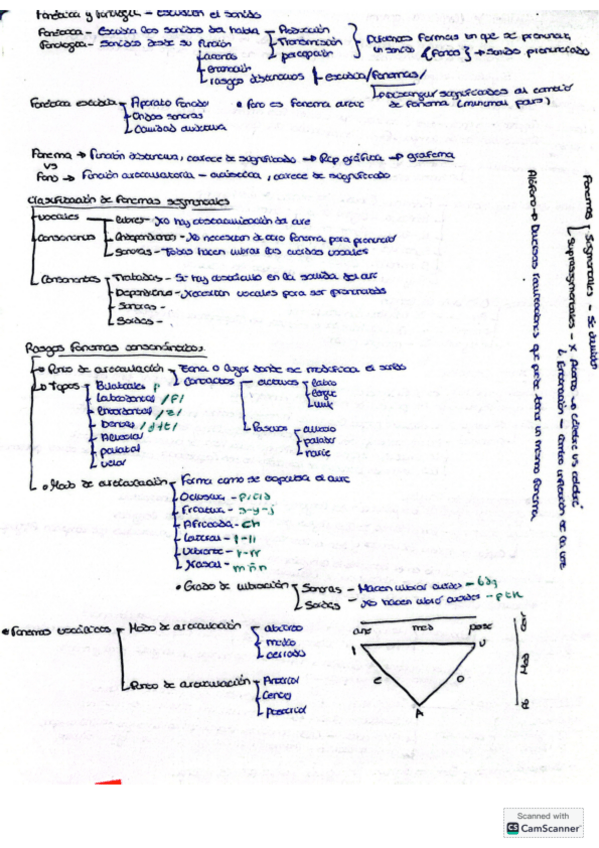 Fonética y fonología - estudian el sonido
Fonética - Estudia los sonidos del habla Producción
Transmisión
percepción
Diferentes formas en que se pronuncia
un sonido [Fonos] → sonido pronunciado
Fonología - Sonidos desde su función
acento
entonación
rasgos distintivos estudia /fonemas/
distinguir significados al cambio
de fonema (minimal pairs)
Fonética estudia Aparato fonador
Ondas sonoras
Cavidad auditiva
• Fono es Fonema
Fonema → Función distintiva, carece de significado → Rep gráfica → grafema
vs
Fono → Función articulatoria - acústica, carece de significado
Clasificación de fonemas segmentales
Vocales
Libres - No hay obstaculización del aire
Independientes - No necesitan de otro fonema para pronunciar
Sonoras - Todas hacen vibrar las cuerdas vocales
Consonantes
Trabadas - Si hay obstáculo en la salida del aire
Dependientes - Necesitan vocales para ser pronunciadas
Sonoras -
Sordas -
Fonemas
Segmentales - Se dividen
Suprasegmentales - x Acento
Entonación - cambio inflexión de la voz
Alófono → Diversas realizaciones que puede tener un mismo fonema
Rasgos Fonemas consonánticos
• Punto de articulación Zona o lugar donde se modifica el sonido
Contactos - activos labio
lengua
Pasivos alveolo
paladar
Tipos
Bilabiales p
Labiodental /f/
Interdental /z/
Dental /d t/
Alveolar
palatal
velar
• Modo de articulación Forma como se expulsa el aire
Oclusiva -
Fricativa - s-y-j
Africada - ch
Lateral - l-ll
Vibrante - r-rr
Nasal - m n ñ
• Grado de vibración Sonoras - Hacen vibrar cuerdas - b d g
Sordas - No hacen vibrar cuerdas - p t k
• Fonemas vocálicos Modo de articulación abierto
medio
cerrado
Punto de articulación Anterior
Central
Posterior
ant med post
I U
E O
A
Scanned with
CS CamScanner